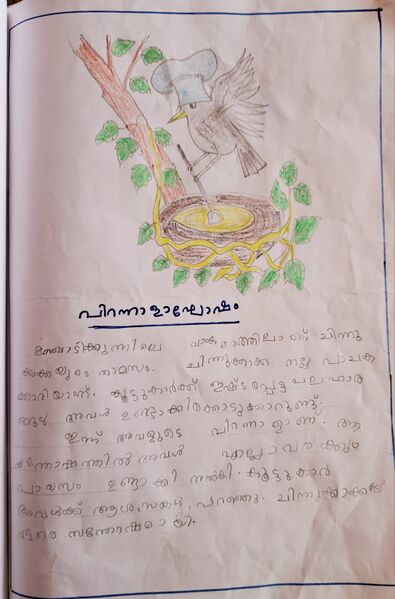 പിറന്നാളാഘോഷം
മഞ്ചാടിക്കുന്നിലെ വാക മരത്തിലാണ് ചിന്നു
കാക്കയുടെ താമസം. ചിന്നുകാക്ക നല്ല പാചക
ക്കാരിയാണ്. കൂട്ടുകാർക്ക് ഇഷ്ടപ്പെട്ട പലഹാര
ങ്ങൾ അവൾ ഉണ്ടാക്കിക്കൊടുക്കാറുണ്ട്;
ഇന്ന് അവളുടെ പിറന്നാളാണ്. ആ
സന്തോഷത്തിൽ അവൾ എല്ലാവർക്കും
പായസം ഉണ്ടാക്കി നൽകി. കൂട്ടുകാർ
അവൾക്ക് ആശംസകൾ പറഞ്ഞു. ചിന്നുകാക്കക്ക്
വളരെ സന്തോഷമായി.